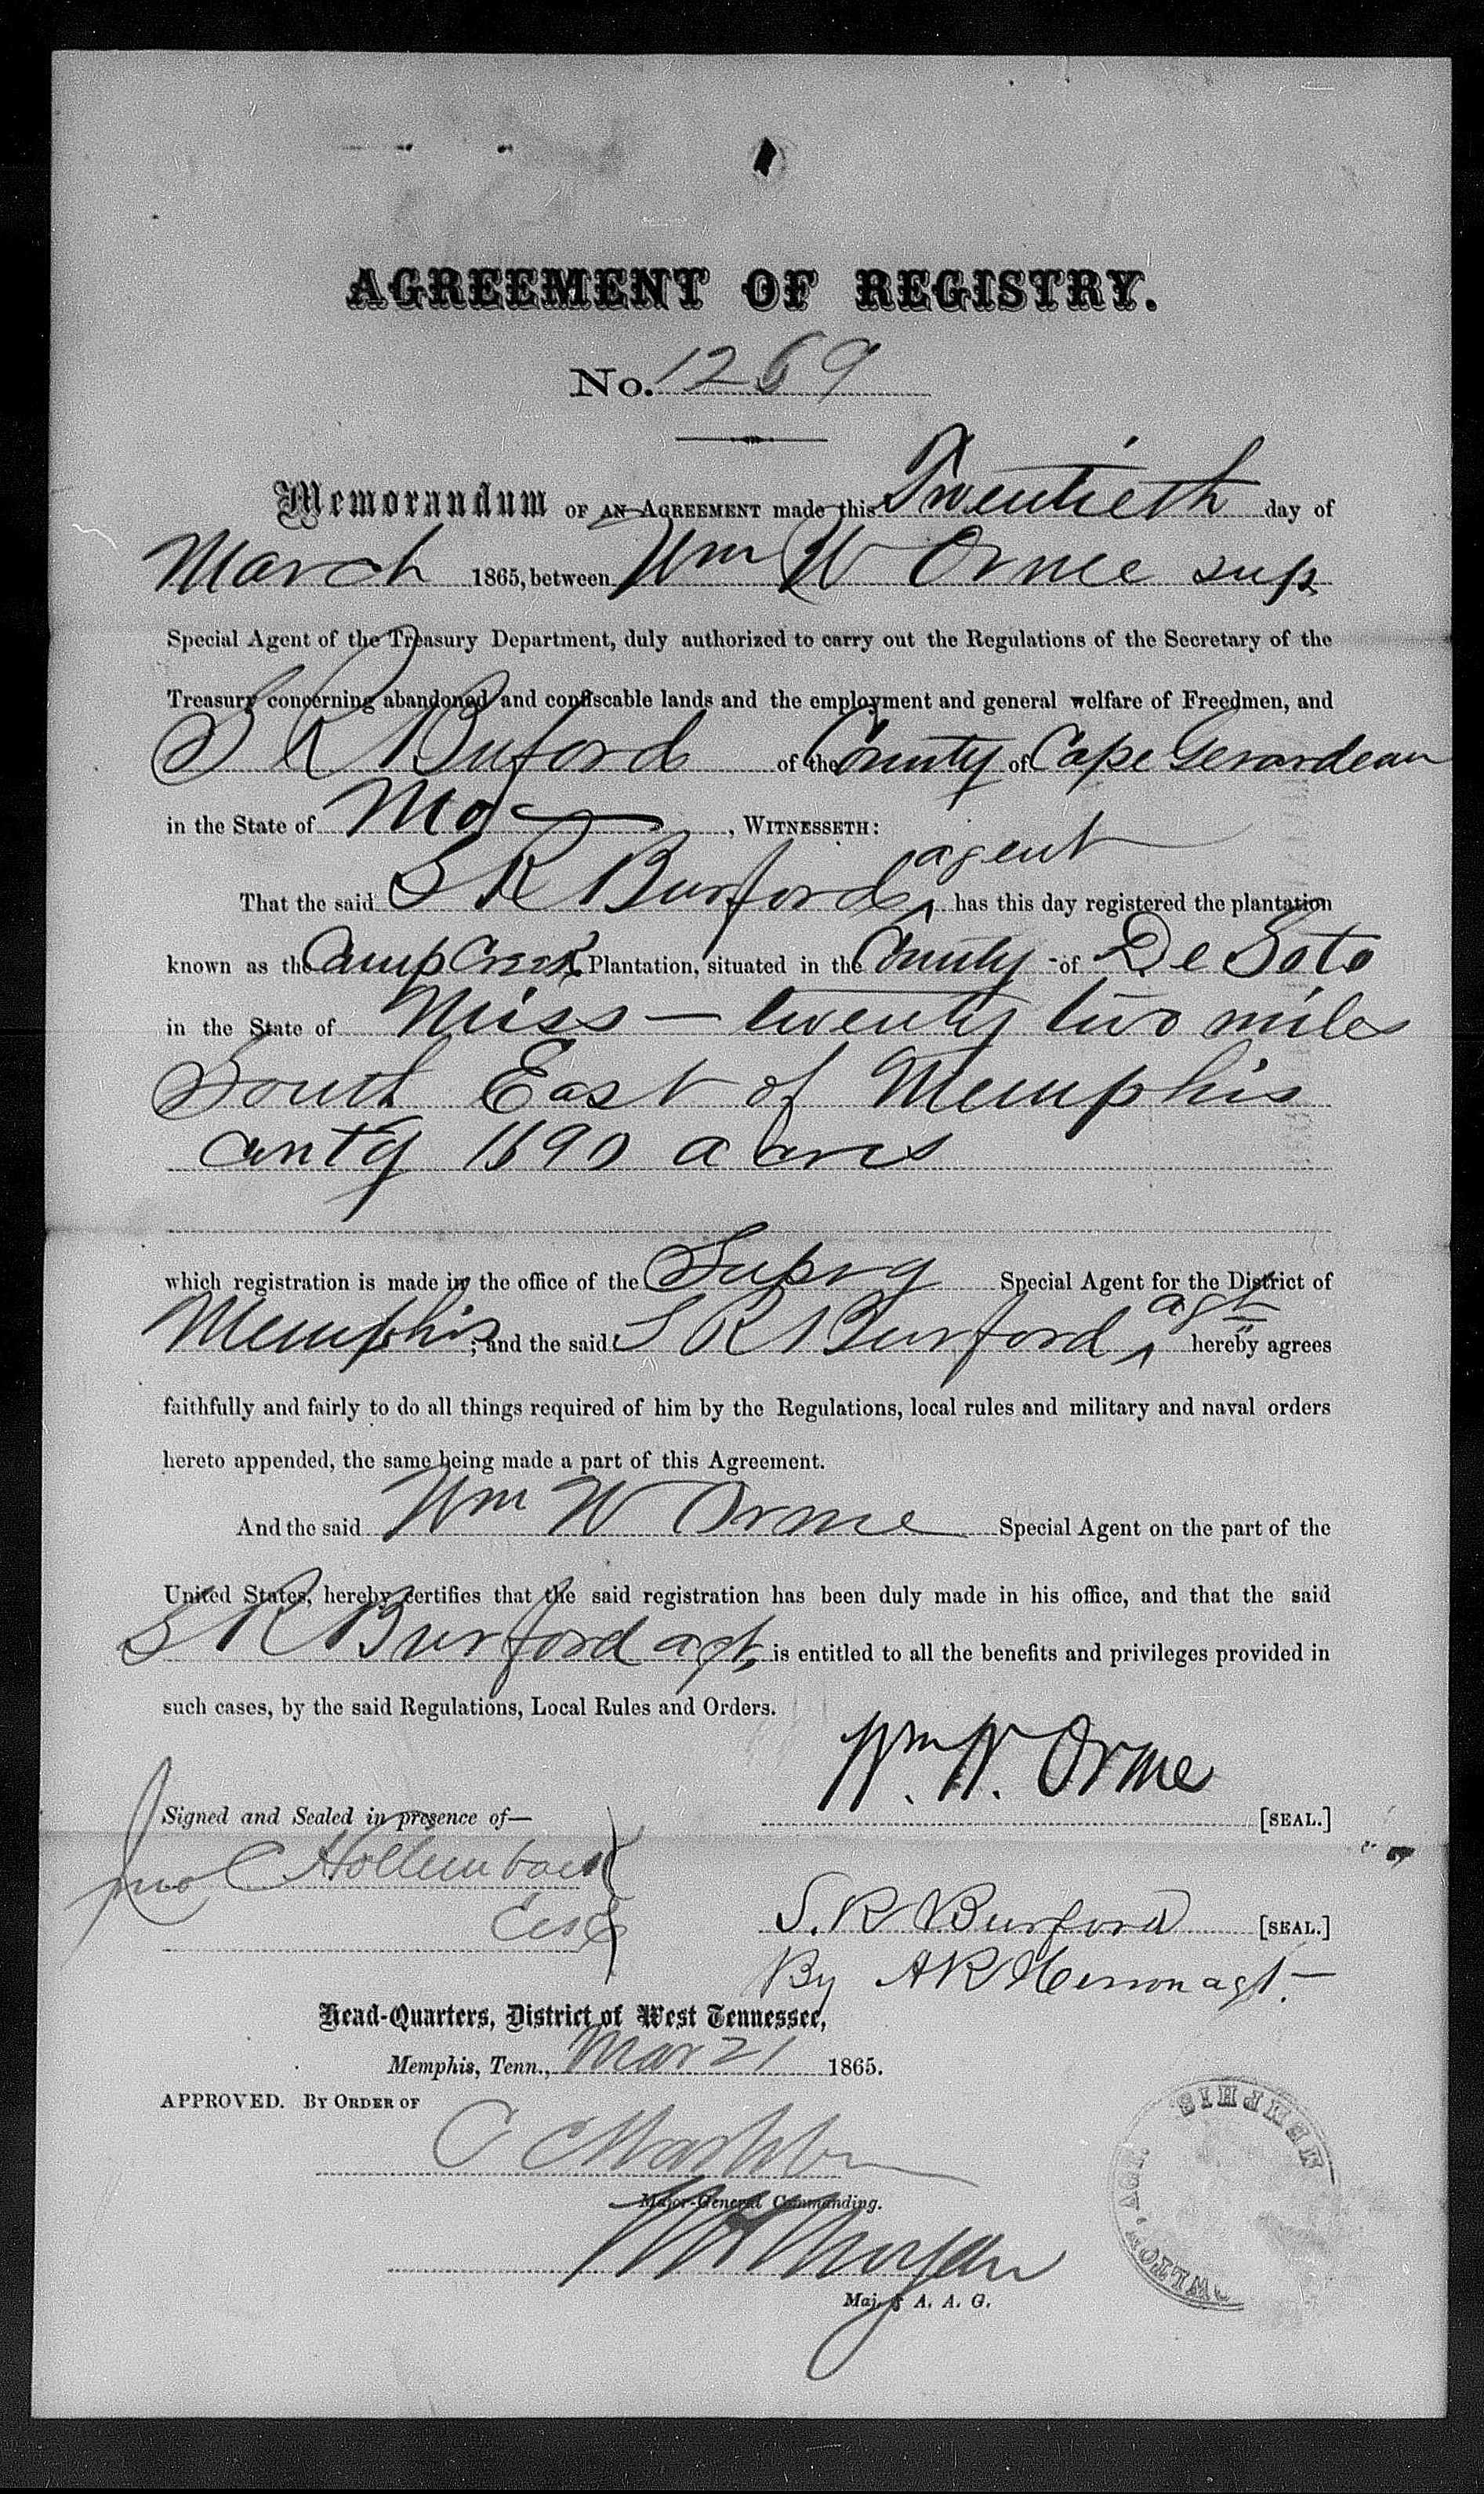 AGREEMENT OF REGISTRY.
No. 1269
Memorandum OF AN AGREEMENT made this Twentieth day of
March 1865, between Wm W Orme sup
Special Agent of the Treasury Department, duly authorized to carry out the Regulations of the Secretary of the
Treasury concerning abandoned and confiscable lands and the employment and general welfare of Freedmen, and
S R Buford of the County of Cape Gerardeau
in the State of Mo , WITNESSETH:
agent
That the said S R Burford ^ has this day registered the plantation
known as the Camp Creek Plantation, situated in the County of De Soto
in the State of Miss — twenty two miles
South East of Memphis
contg 1590 acres
which registration is made in the office of the Supvg Special Agent for the District of
agt
Memphis ; and the said S R Burford ^ hereby agrees
faithfully and fairly to do all things required of him by the Regulations, local rules and military and naval orders
hereto appended, the same being made a part of this Agreement.
And the said Wm W Orme Special Agent on the part of the
United States, hereby certifies that the said registration has been duly made in his office, and that the said
S R Burford agt, is entitled to all the benefits and privileges provided in
such cases, by the said Regulations, Local Rules and Orders.
Wm. W. Orme
Signed and Sealed in presence of— [SEAL.]
Jno C Hollenback
Esq S. R Burford [SEAL.]
By A R Herron agt. —
Head-Quarters, District of West Tennessee,
Memphis, Tenn., Mar 21 1865.
APPROVED. BY ORDER OF
C C Washburn
Major-General Commanding.
Morgan
Maj. & A. A. G.
MEMPHIS